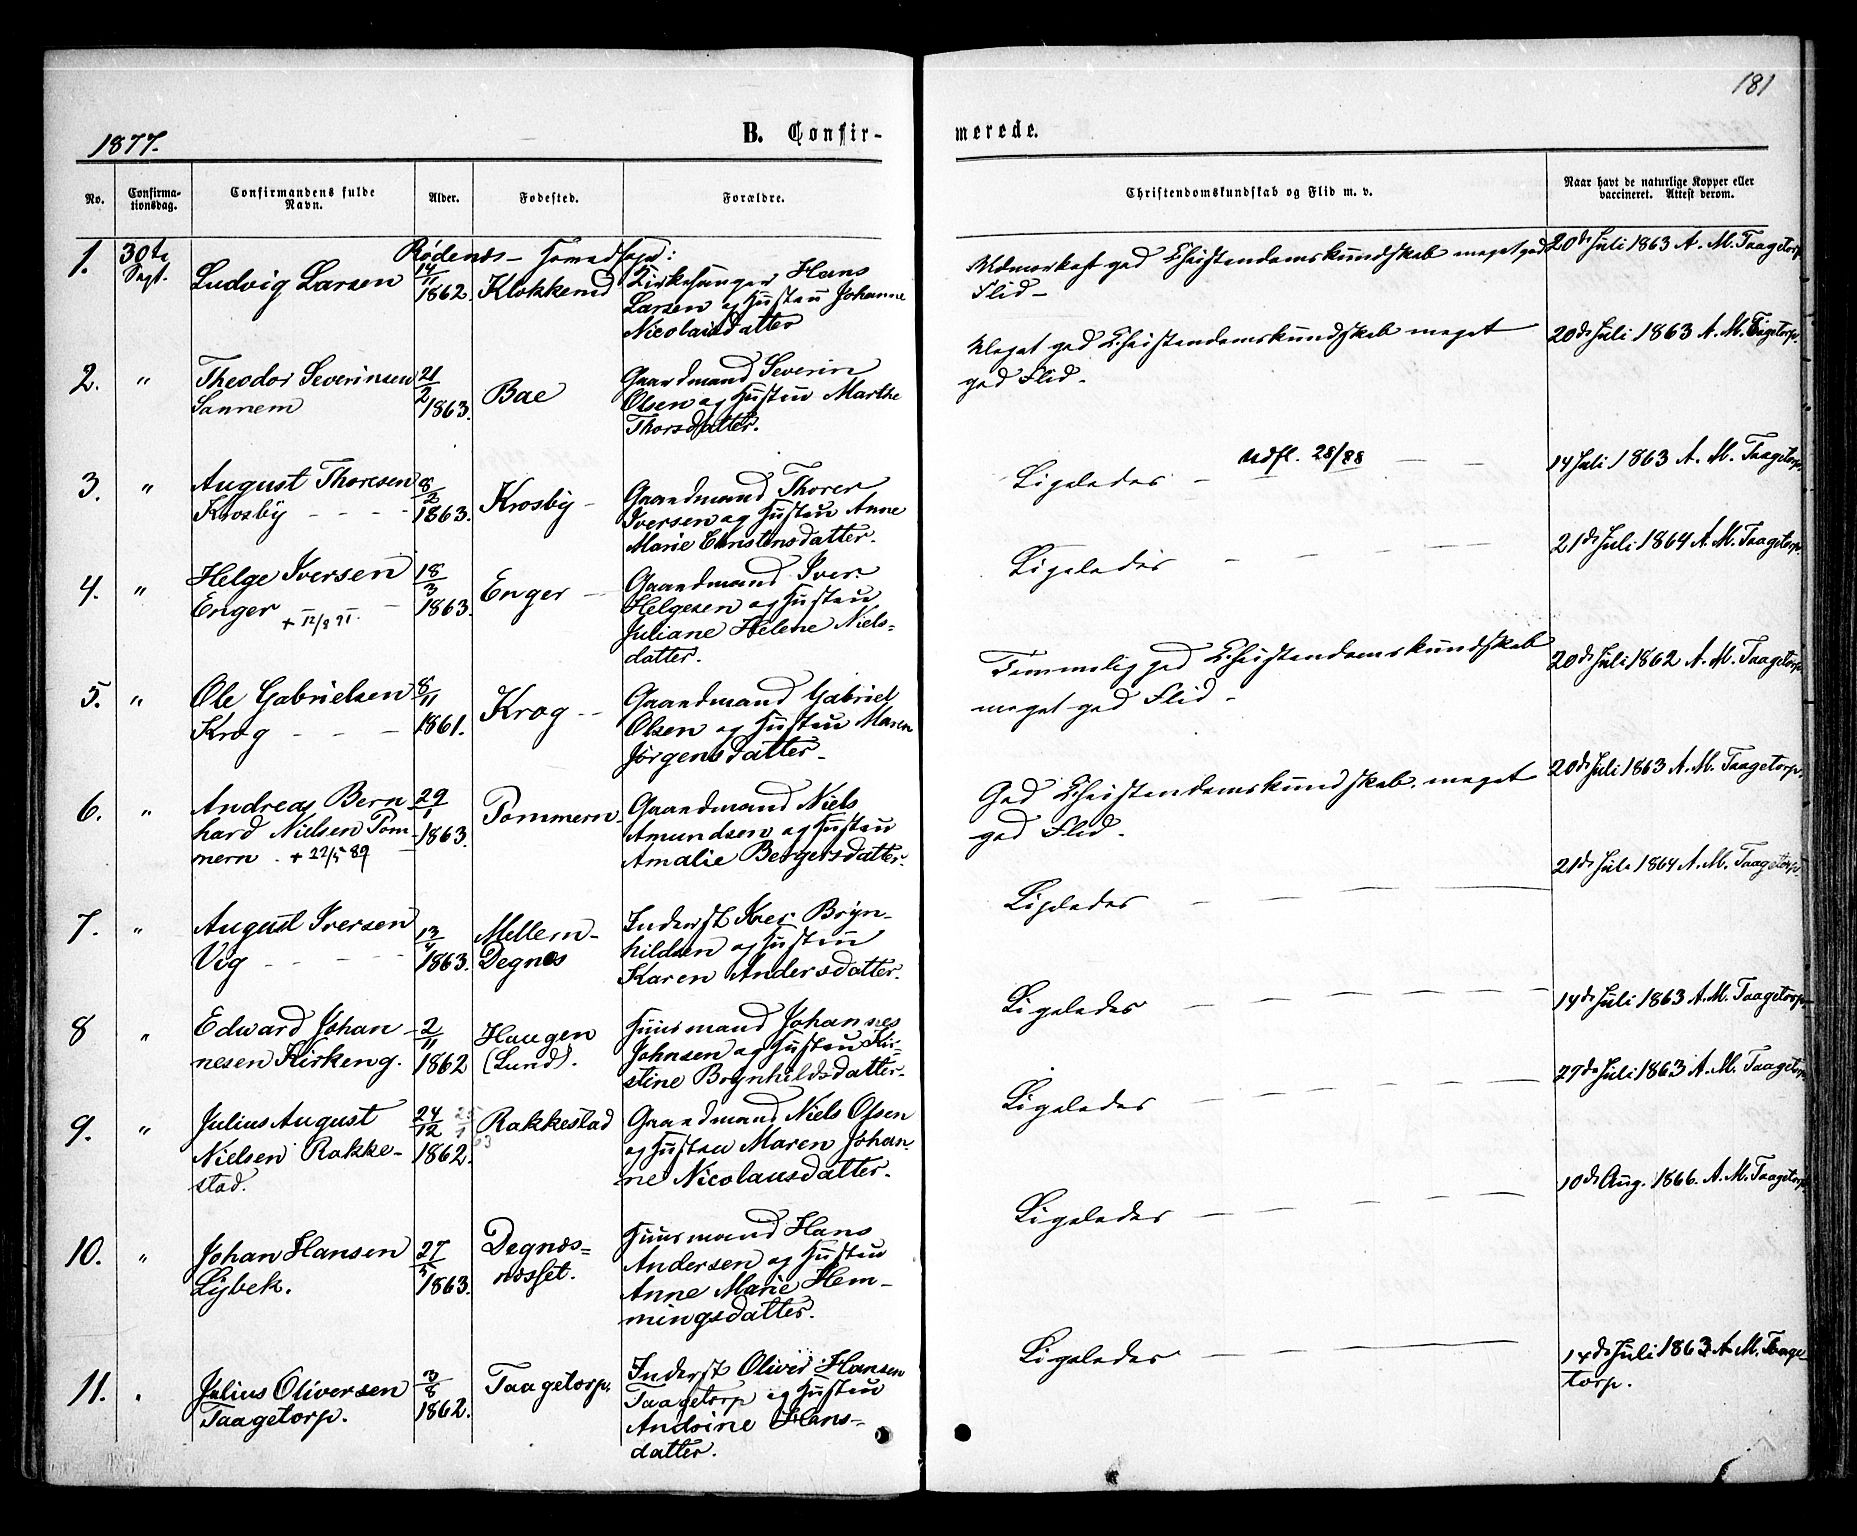 181
1877.
B. Confir-
merede.
No.
Confirma-
tionsdag.
Confirmandens fulde
Navn.
Alder.
Fødested.
Forældre.
Christendomskundskab og Flid m. v.
Naar havt de naturlige Kopper eller
vaccineret. Attest derom.
Rødenæs-Hovedsogn:
1.
30te
Sept.
Ludvig Larsen
14/11
1862.
Klokkerud
Kirkesanger Hans
Larsen og Hustru Johanne
Nicolaisdatter
Udmærket god Christendomskundskab meget god
Flid-
20de Juli 1863 A. M. Taagetorp
2.
"
Theodor Severinsen
Sannem
21/2
1863.
Bae
Gaardmand Severin
Olsen og Hustru Marthe
Thorsdatter.
Meget god Christendomskundskab meget
god Flid-
20de Juli 1863 A. M. Tagetorp.
3.
"
August Thoresen
Krosby
8/2
1863.
Krosby
Gaardmand Thorer
Iversen og Hustru Anne
Marie Christensdatter.
Udfl. 28/88
Ligeledes
14 Juli 1863 A. M. Taagetorp
4.
"
Helge Iversen
Enger
+ 12/8 91.
18/3
1863.
Enger
Gaardmand Iver
Helgesen og Hustru
Juliane Helene Niels-
datter.
Ligeledes
21de Juli 1864 A. M. Taagetorp
5.
"
Ole Gabrielsen
Krog
8/11
1861.
Krog
Gaardmand Gabriel
Olsen og Hustru Maren
Jörgensdatter
Temmelig god Christendomskundskab
meget god Flid-
20de Juli 1862 A. M. Taagetorp
6.
"
Andreas Bern
hard Nielsen Pom
mern. + 22/5 89
29/1
1863.
Pommern
Gaardmand Niels
Amundsen og Hustru
Amalie Bergersdatter.
God Christendomskundskab. meget
god Flid-
20de Juli 1863 A. M. Taagetorp.
7.
"
August Iversen
Vig
13/4
1863.
Mellem-
Degnes
Inderst Iver Bryn-
hildsen og Hustru
Karen Andersdatter.
Ligeledes
21de Juli 1864 A. M. Taagetorp.
8
"
Edward Johan-
nesen Kirkeng.
2/11
1862
Haugen
(Lund).
Huusmand Johannes
Johnsen og Hustru Kir-
stine Brynhildsdatter.
Ligeledes
14de Juli 1863 A. M. Taagetorp
9.
"
Julius August
Nielsen Rakke-
stad.
24/12
1862.
Rakkestad
Gaardmand Niels Olsen
og Hustru Maren Johan-
ne Nicolausdatter.
Ligeledes
27de Juli 1863 A. M. Taagetorp
10.
"
Johan Hansen
Lybek.
27/5
1863.
Degnæs-
næsset.
Huusmand Hans
Andersen og Hustru
Anne Marie Hem-
mingsdatter.
Ligeledes
10de Aug. 1866. A. M. Taagetorp
11.
"
Julius Oliversen
Taagetorp.
3/8
1862.
Taagetorp.
Inderst Oliver Hansen
Taagetorp og Hustru
Andrine Hans-
datter.
Ligeledes
14de Juli 1863 A. M. Taage-
torp.